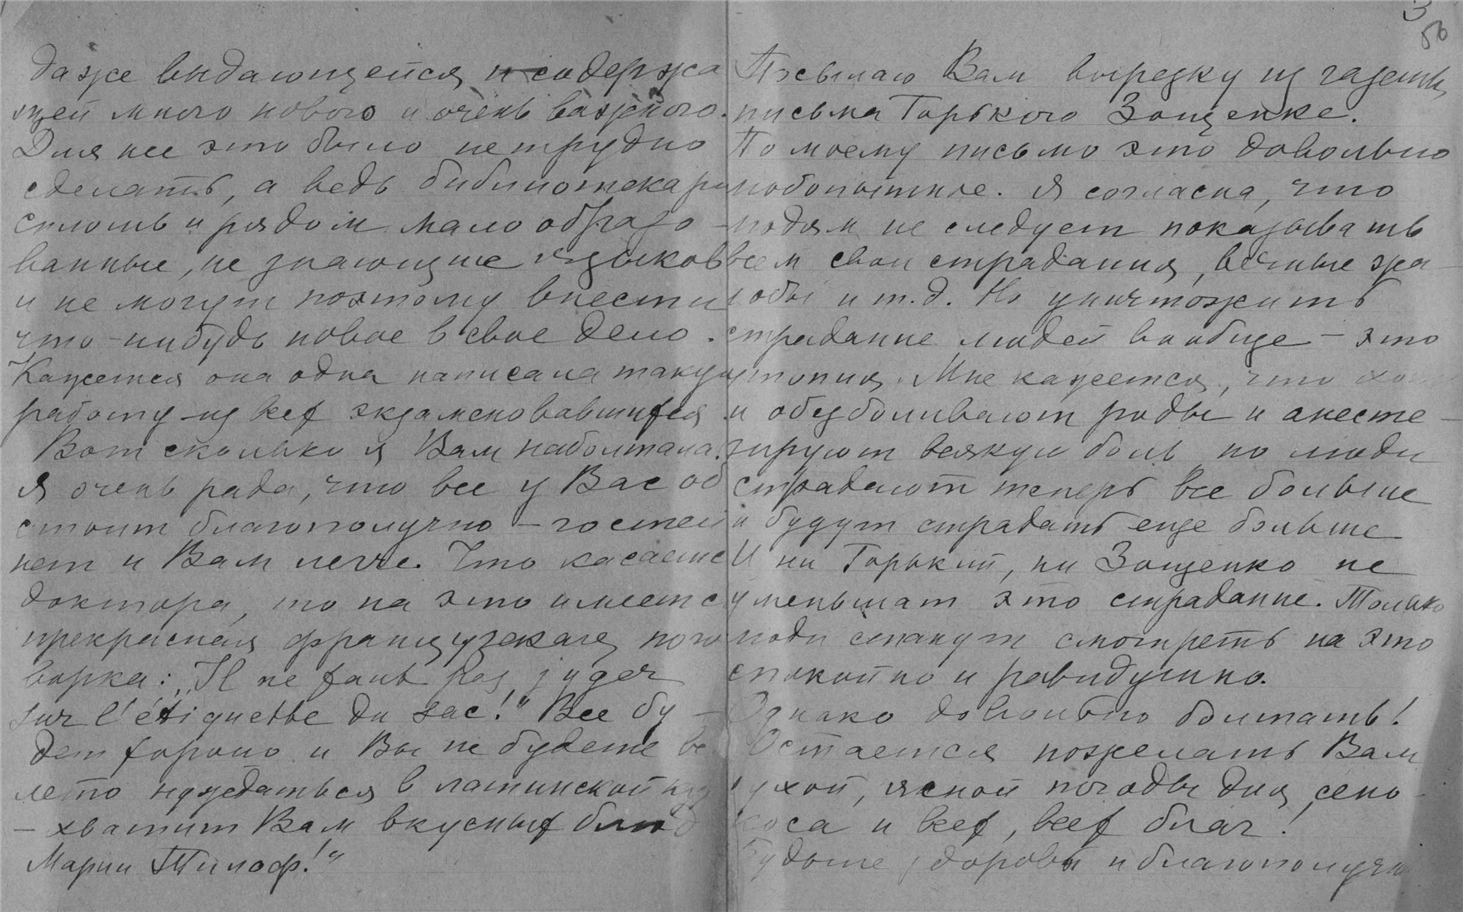 даже выдающейся и содержа
щей много нового и очень важного.
Для нее это было не трудно
сделать, а ведь библиотекари
сплошь и рядом мало образо-
ванные, не знающие языков
и не могут поэтому внести
что-нибудь новое в свое дело.
Кажется она одна написала такую
работу из всех экзаменовавшихся.
Вот сколько я Вам наболтала.
Я очень рада, что все у Вас об
стоит благополучно – гостей
нет и Вам легче. Что касается
доктора, то на это имеется
прекрасная французская пого
ворка: „Il ne faut pas juger
sur l'étiquette du sac!" Все бу-
дет хорошо и Вы не будете все
лето нуждаться в латинской кух
– хватит Вам вкусных блюд
Марии Тимоф.!"
3
56
Посылаю Вам вырезку из газеты,
письма Горького Зощенке.
По моему письмо это довольно
любопытное. Я согласна, что
людям не следует показывать
всем свои страдания, вечные жа-
лобы и т.д. Но уничтожить
страдание людей вообще – это
утопия. Мне кажется, что хотя
и обезболивают роды и анесте-
зируют всякую боль но люди
страдают теперь все больше
и будут страдать еще больше
И ни Горький, ни Зощенко не
уменьшат это страдание. Только
люди станут смотреть на это
спокойно и равнодушно.
Однако довольно болтать!
Остается пожелать Вам
сухой, ясной погоды для сено-
коса и всех, всех благ!
Будьте здоровы и благополучны